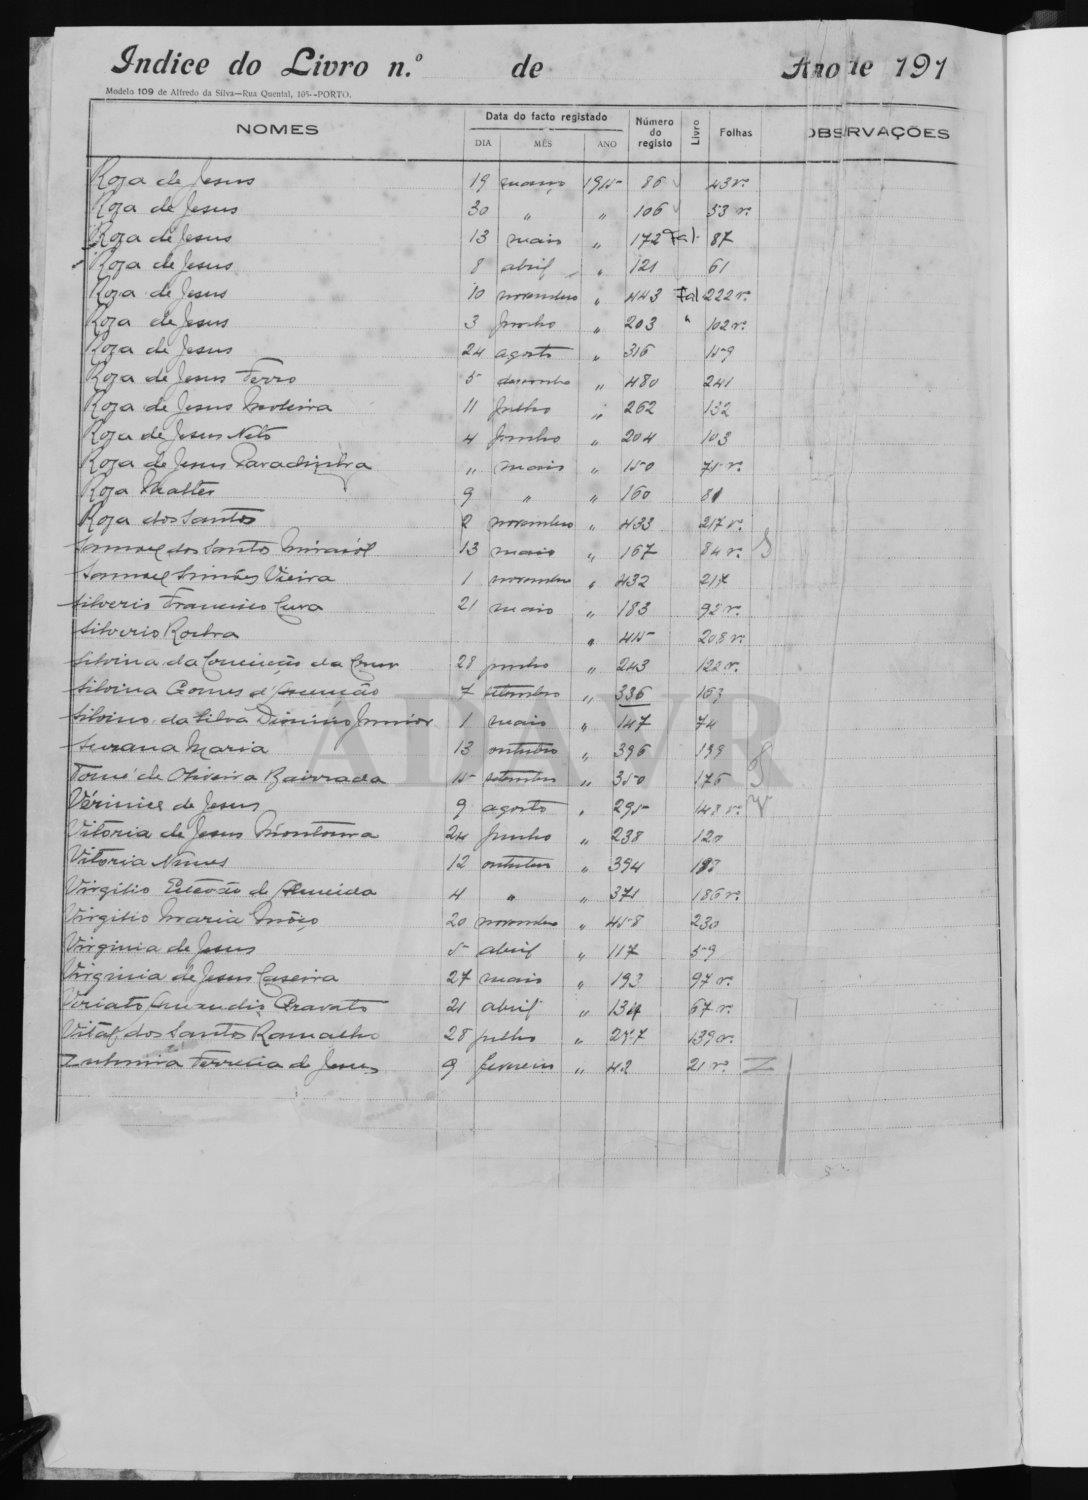 Indice do Livro n.º de Ano de 191
Modelo 109 de Alfredo da Silva—Rua Quental, 105--PORTO.
NOMES Data do facto registado Número do registo Livro Folhas OBSERVAÇÕES
DIA MÊS ANO
Roza de Jesus 19 março 1915 86 43 v.
Roza de Jesus 30 " " 106 53 v.
Roza de Jesus 13 maio " 172 Fal. 87
Roza de Jesus 8 abril " 121 61
Roza de Jesus 10 novembro " 443 Fal 222 v.
Roza de Jesus 3 junho " 203 " 102 v.
Roza de Jesus 24 agosto " 316 159
Roza de Jesus Ferro 5 dezembro " 480 241
Roza de Jesus 11 julho " 262 132
Roza de Jesus Neto 4 junho " 204 103
Roza de Jesus " maio " 150 75 v.
Roza 9 " " 160 81
Roza dos Santos 2 novembro " 433 217 v.
Samuel dos Santos 13 maio " 167 84 v. S
Samuel Simões Vieira 1 novembro " 432 217
Silverio Francisco 21 maio " 183 92 v.
Silverio Rocha " 415 208 v.
Silvina da Conceição da 28 junho " 243 122 v.
Silvina Gomes d'Assunção 7 setembro " 336 163
Silvino da Silva Dionisio Junior 1 maio " 147 74
Suzana Maria 13 outubro " 396 199
Tomé de Oliveira Bairrada 15 setembro " 350 176
de Jesus 9 agosto " 295 148 v. V
Vitoria de Jesus 24 junho " 238 120
Vitoria Nunes 12 outubro " 394
Virgilio de Almeida 4 " " 371 186 v.
Virgilio Maria 20 novembro " 458 230
Virginia de Jesus 5 abril " 117 59
Virginia de Jesus Caseira 27 maio " 193 97 v.
Viriato 21 abril " 134 67 v.
Vital dos Santos Ramalho 28 julho " 277 139 v.
Ferreira de Jesus 9 fevereiro " 42 21 v. Z
ADAVR